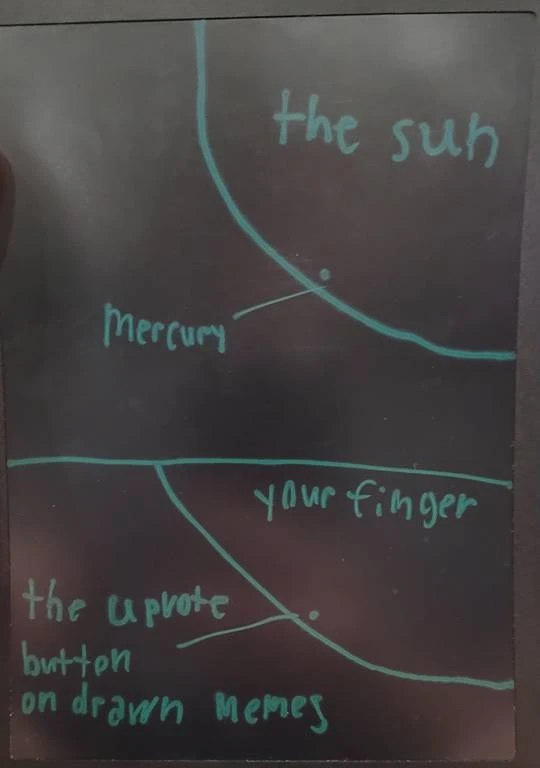 the sun
Mercury
your finger
the upvote
button
on drawn memes